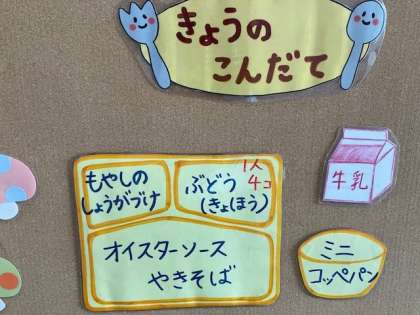 きょうの
こんだて
もやしの
しょうがづけ
ぶどう
(きょほう)
1人
4コ
オイスターソース
やきそば
牛乳
ミニ
コッペパン